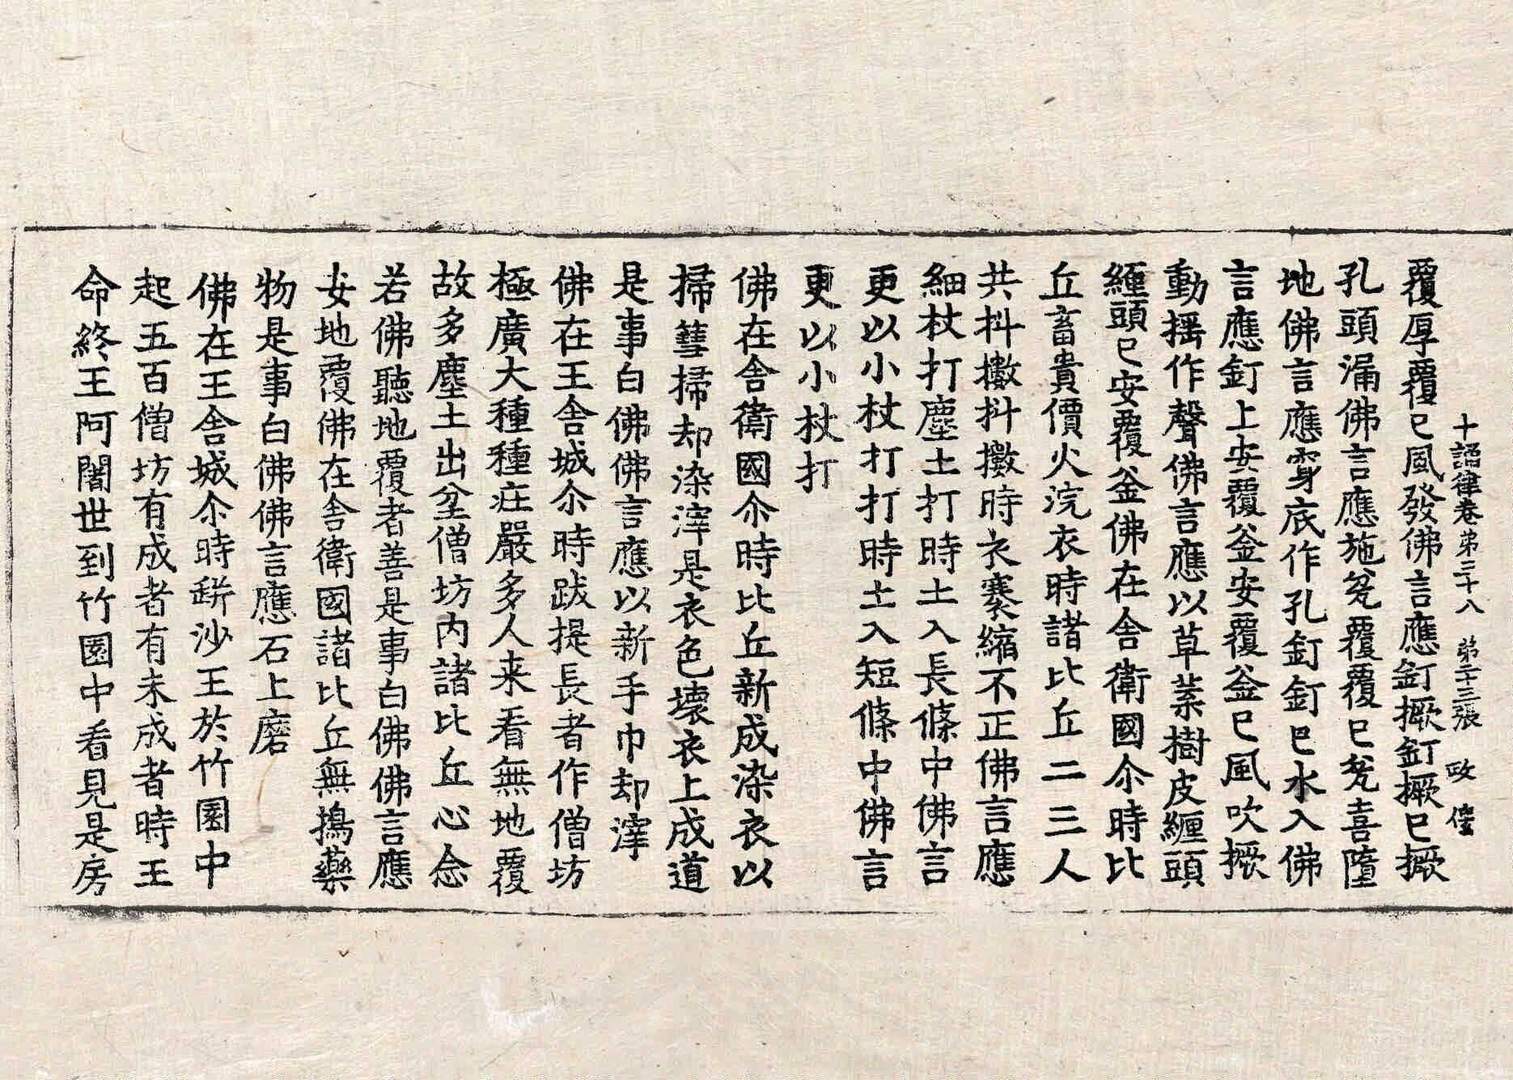 十誦律卷苐三十八　苐二十三張　政　㒶
覆厚覆已風發佛言應釘橛釘橛已橛
孔頭漏佛言應施瓫覆覆已瓫喜墮
地佛言應穿底作孔釘釘已水入佛
言應釘上安覆釜安覆釜已風吹橛
動揺作聲佛言應以草葉樹皮纏頭
纏頭已安覆釜佛在舍衛國尒時比
丘畜貴價火浣衣時諸比丘二三人
共抖擻抖擻時衣褰縮不正佛言應
細杖打塵土打時土入長條中佛言
更以小杖打打時土入短條中佛言
更以小杖打
佛在舍衛國尒時比丘新成染衣以
掃篲掃却染滓是衣色壞衣上成道
是事白佛佛言應以新手巾却滓
佛在王舍城尒時跋提長者作僧坊
極廣大種種庄嚴多人来看無地覆
故多塵土出坌僧坊内諸比丘心念
若佛聽地覆者善是事白佛佛言應
安地覆佛在舍衛國諸比丘無搗藥
物是事白佛佛言應石上磨
佛在王舍城尒時缾沙王於竹園中
起五百僧坊有成者有未成者時王
命終王阿闍世到竹園中看見是房